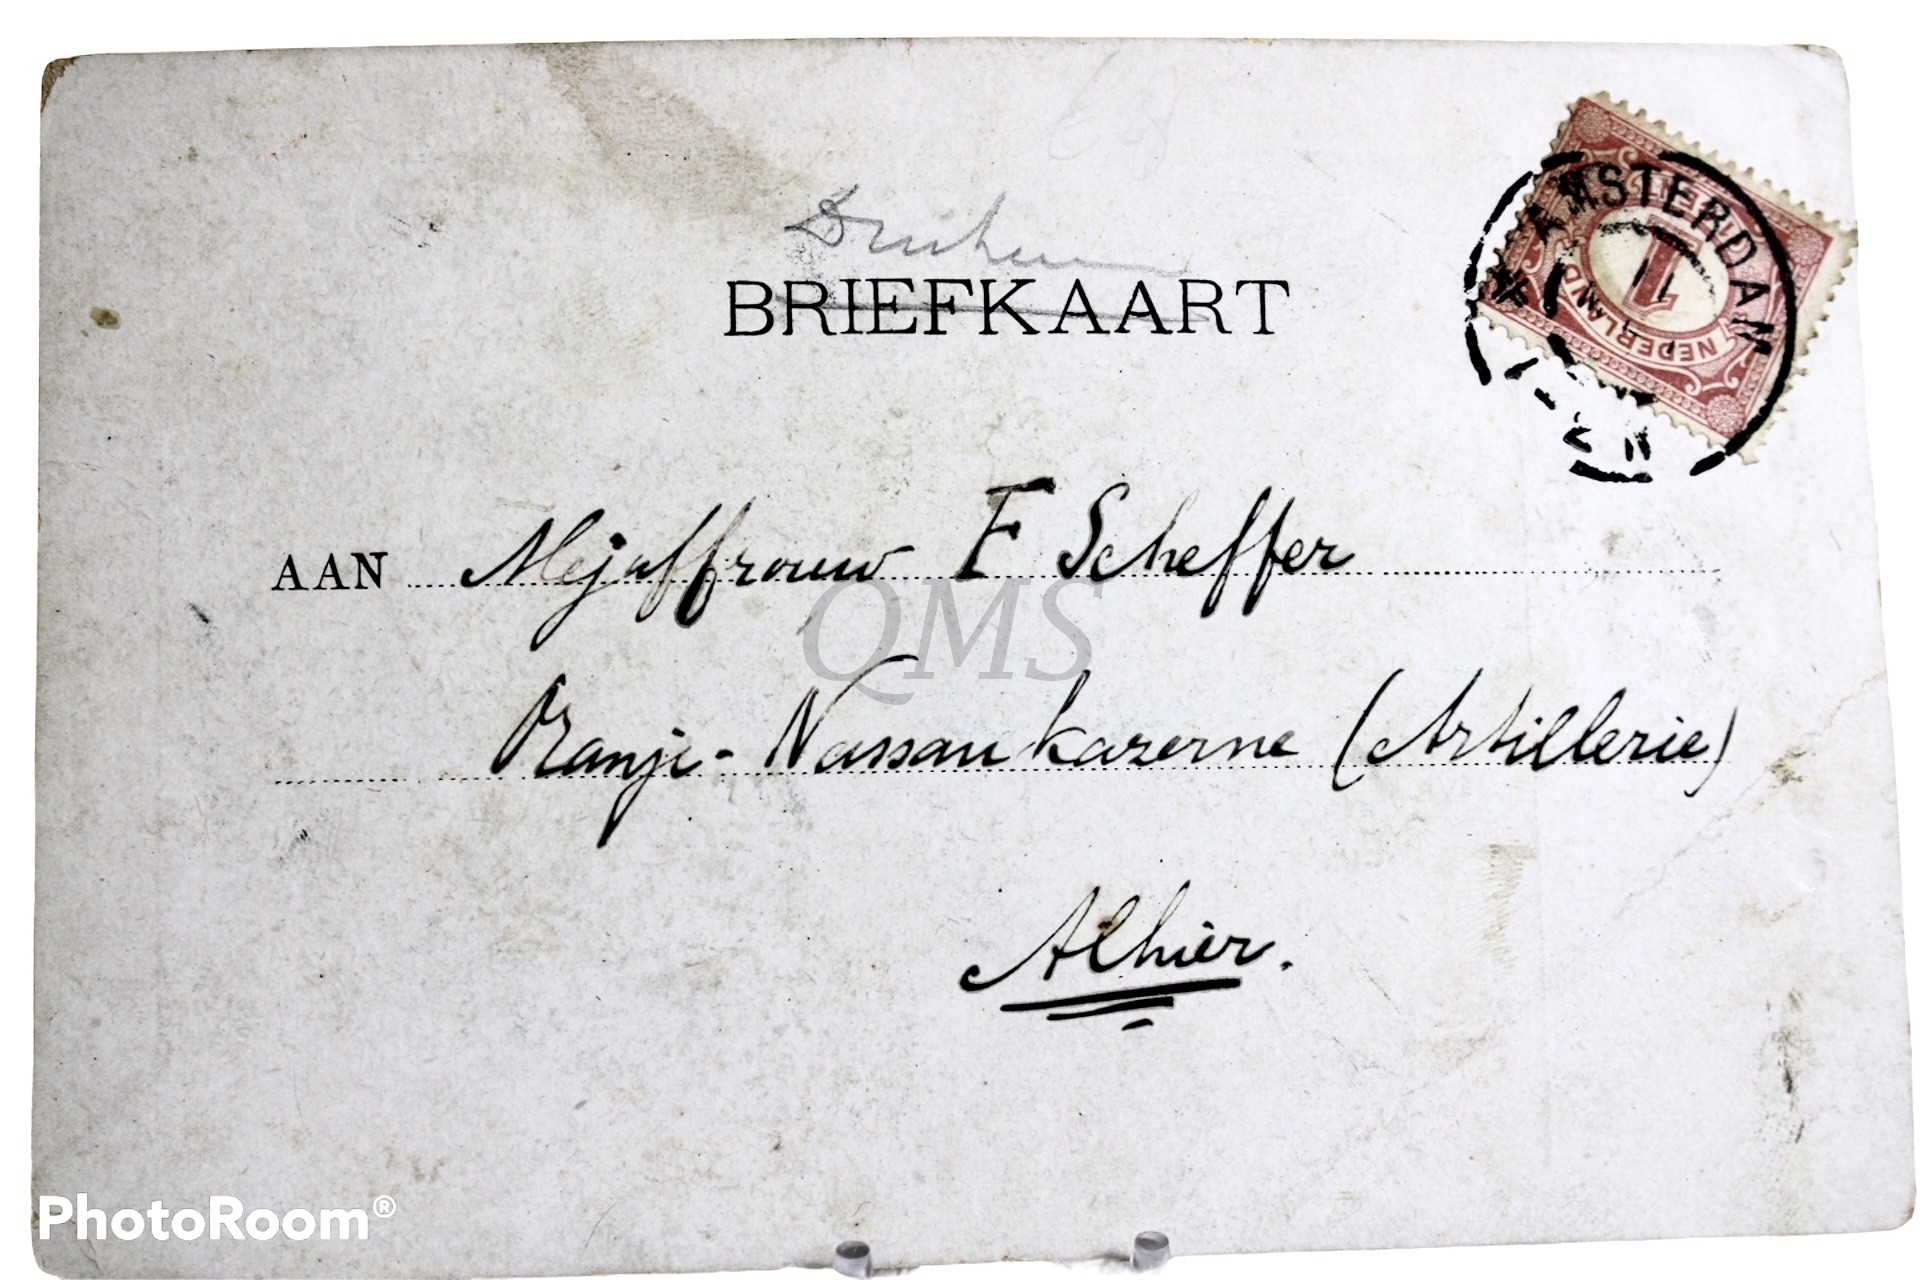 68
BRIEFKAART
AMSTERDAM
1
NEDERLAND
AAN Mejuffrouw F Scheffer
QMS
Oranje-Nassau kazerne (Artillerie)
Alhier.
PhotoRoom®